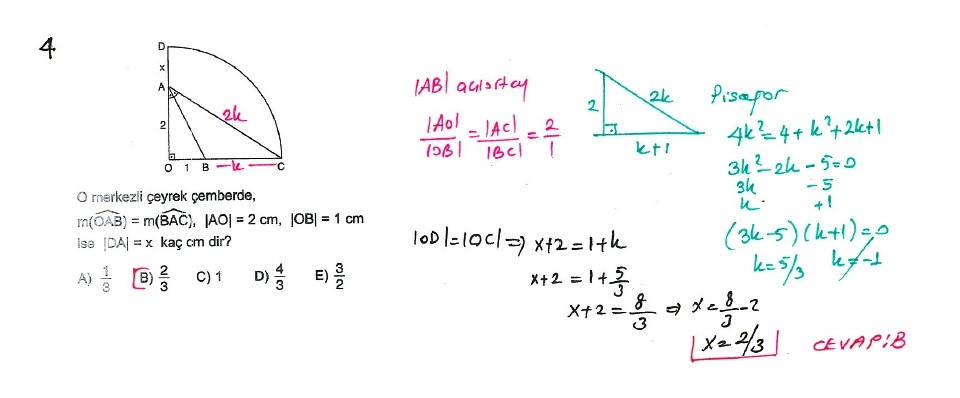 4
D
x
A
2k
2
O 1 B -k- C
O merkezli çeyrek çemberde,
m(OAB) = m(BAC), |AO| = 2 cm, |OB| = 1 cm
ise |DA| = x kaç cm dir?
A) 1/3 B) 2/3 C) 1 D) 4/3 E) 3/2
|AB| açıortay
|AO|/|OB| = |AC|/|BC| = 2/1
2
2k
k+1
Pisagor
4k²=4+k²+2k+1
3k²-2k-5=0
3k -5
k +1
(3k-5)(k+1)=0
k=5/3 k=-1
|OD|=|OC| ⇒ x+2=1+k
x+2=1+5/3
x+2=8/3 ⇒ x=8/3-2
x=2/3
CEVAP:B